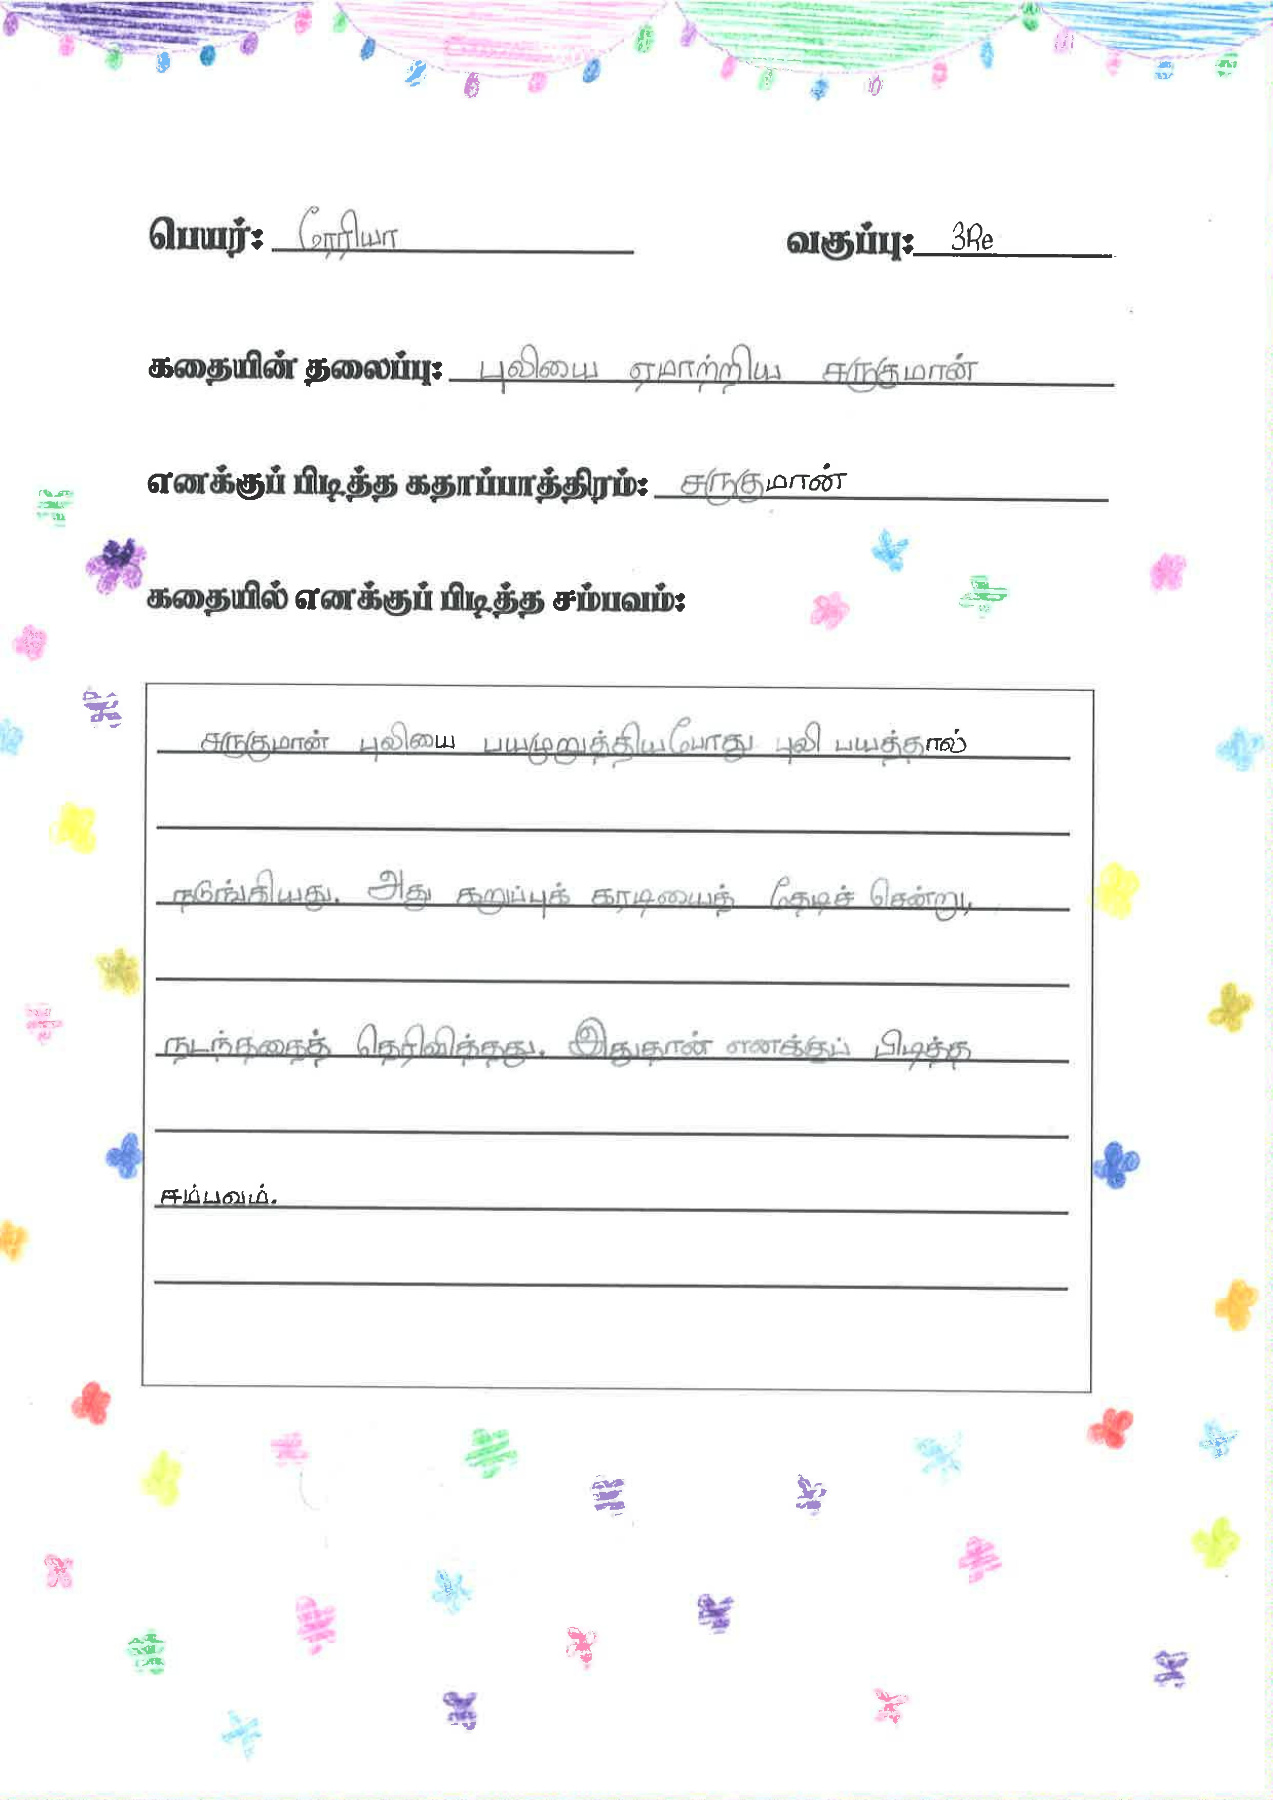 பெயர்: ரேரியா வகுப்பு: 3Re
கதையின் தலைப்பு: புலியை ஏமாற்றிய சருகுமான்
எனக்குப் பிடித்த கதாப்பாத்திரம்: சருகுமான்
கதையில் எனக்குப் பிடித்த சம்பவம்:
சருகுமான் புலியை பயமுறுத்தியபோது புலி பயத்தால்
நடுங்கியது. அது கறுப்புக் கரடியைத் தேடிச் சென்று,
நடந்ததைத் தெரிவித்தது. இதுதான் எனக்குப் பிடித்த
சம்பவம்.